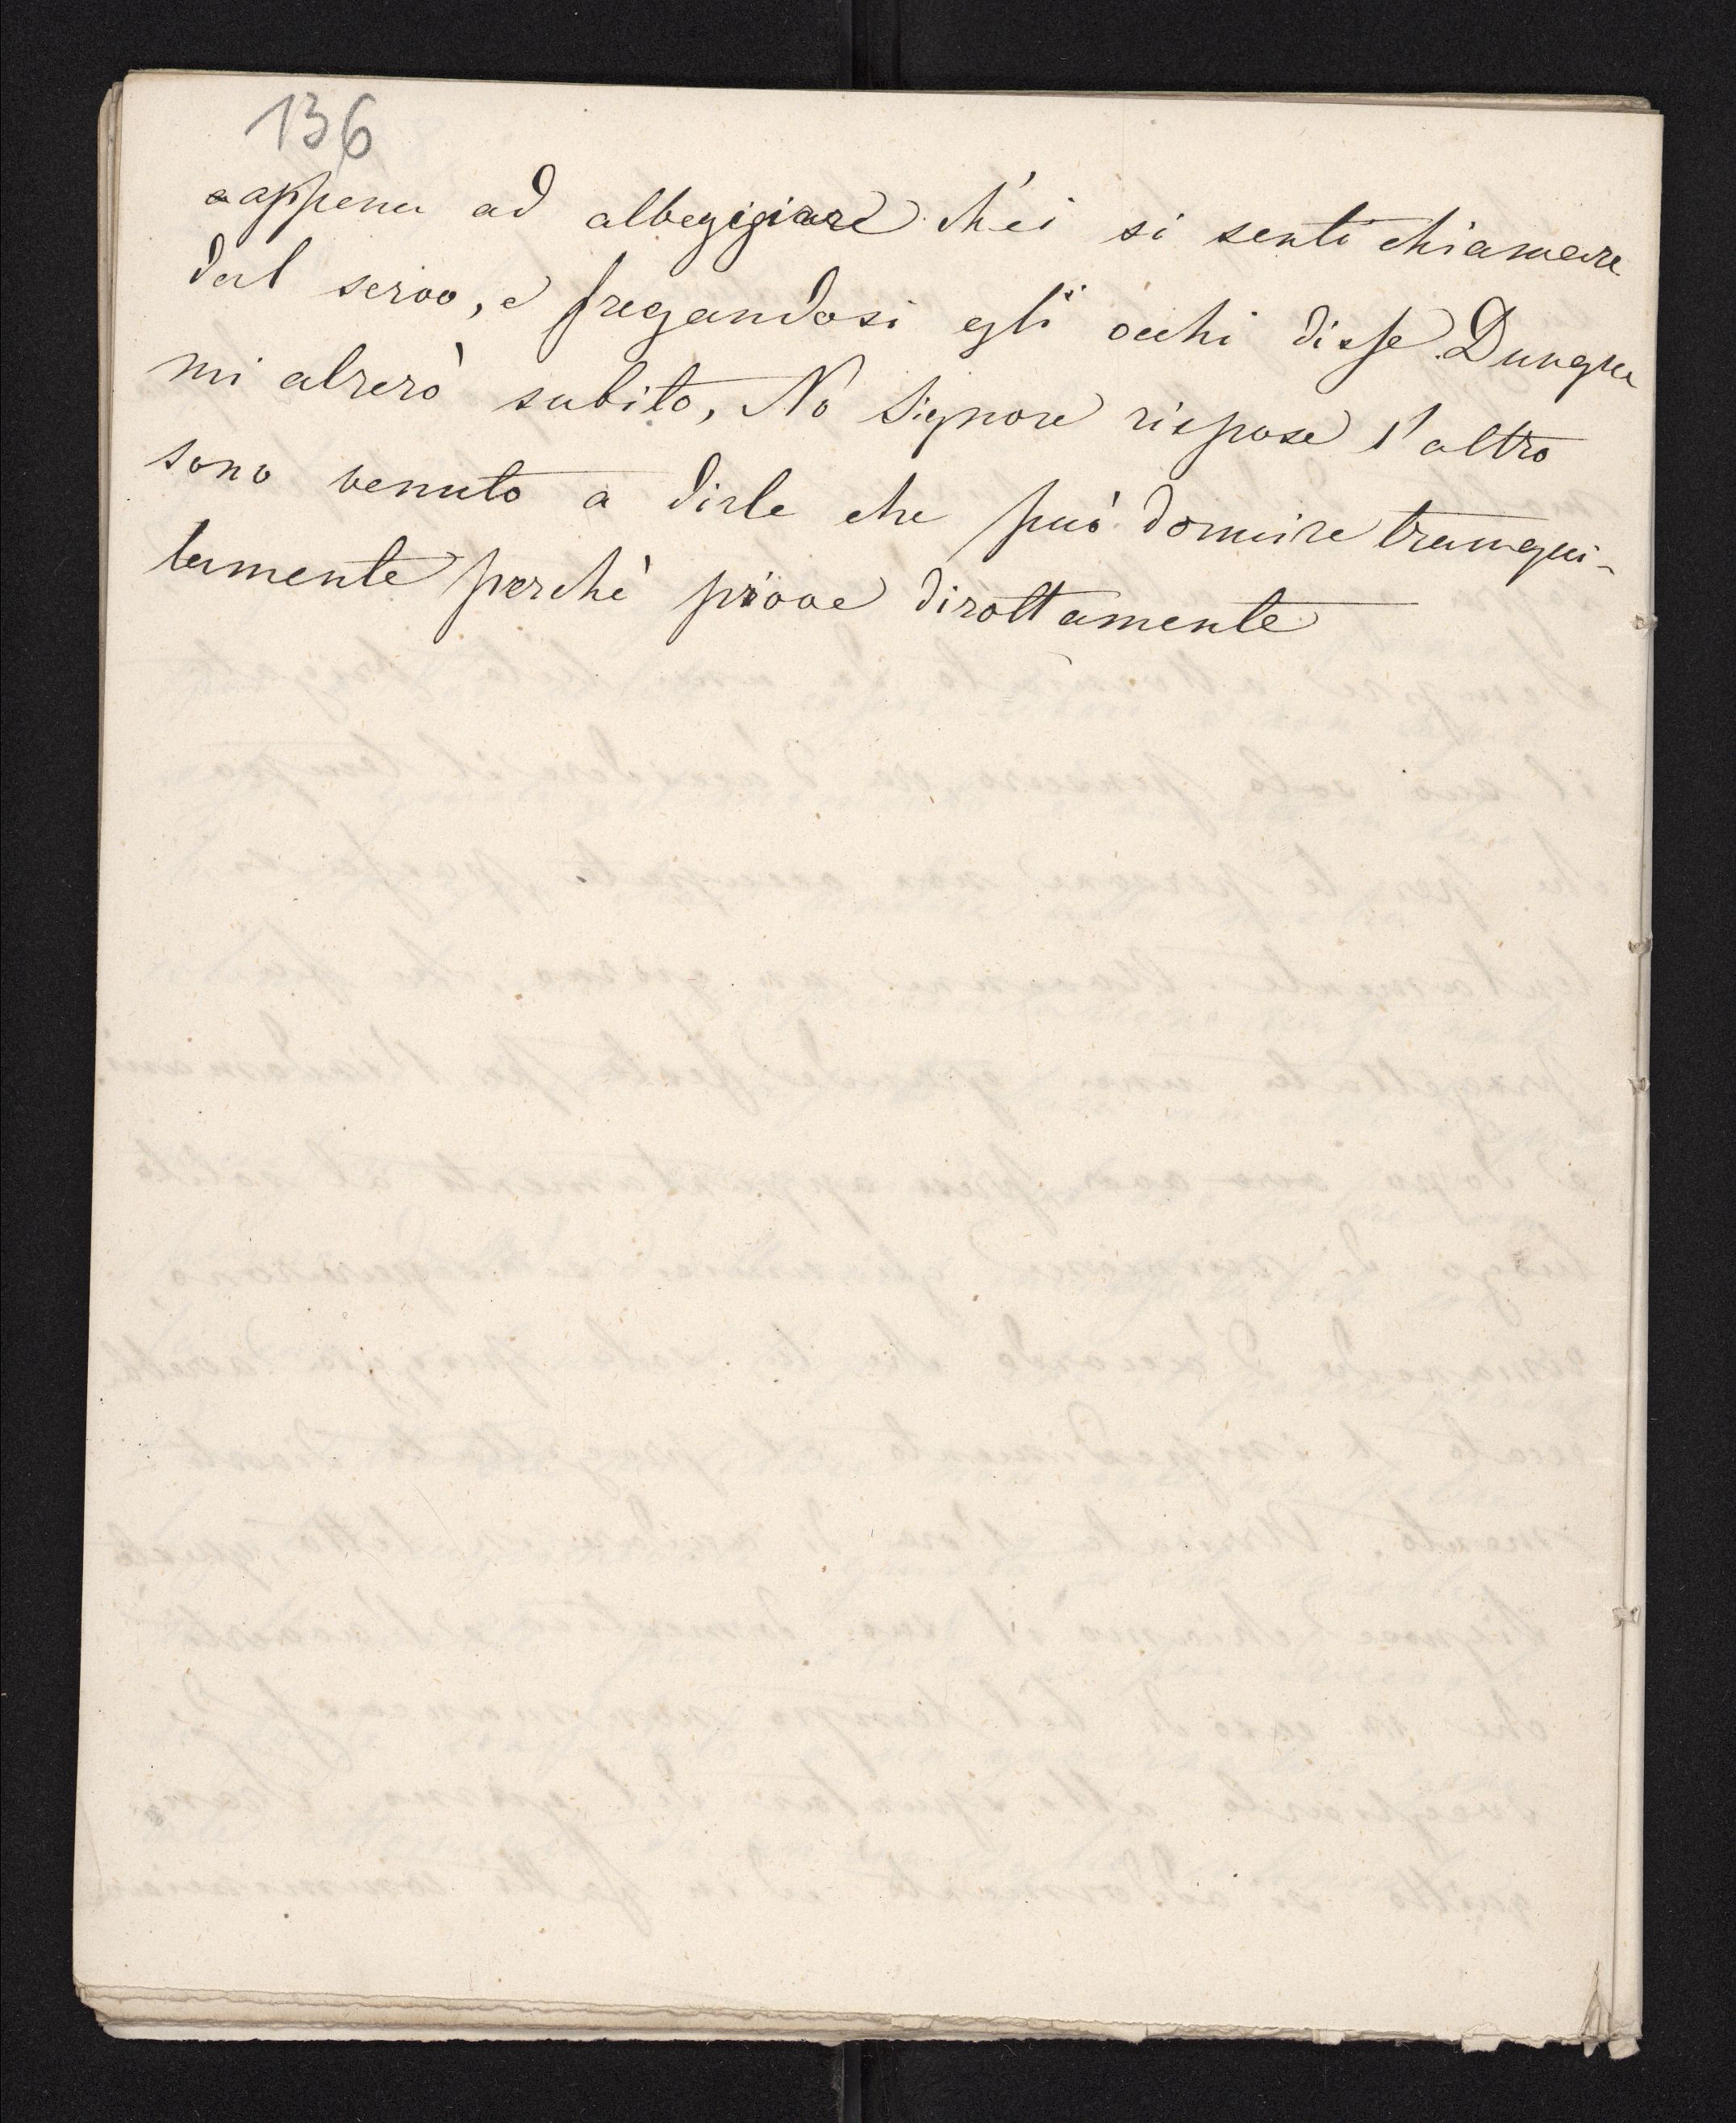 136
a appena ad albeggiare ch'ei si sentì chiamare
dal servo, e fregandosi egli occhi disse Dunque
mi alzerò subito, No Signore rispose l'altro
sono venuto a dirle che può dormire tranqui-
lamente perchè piove dirottamente